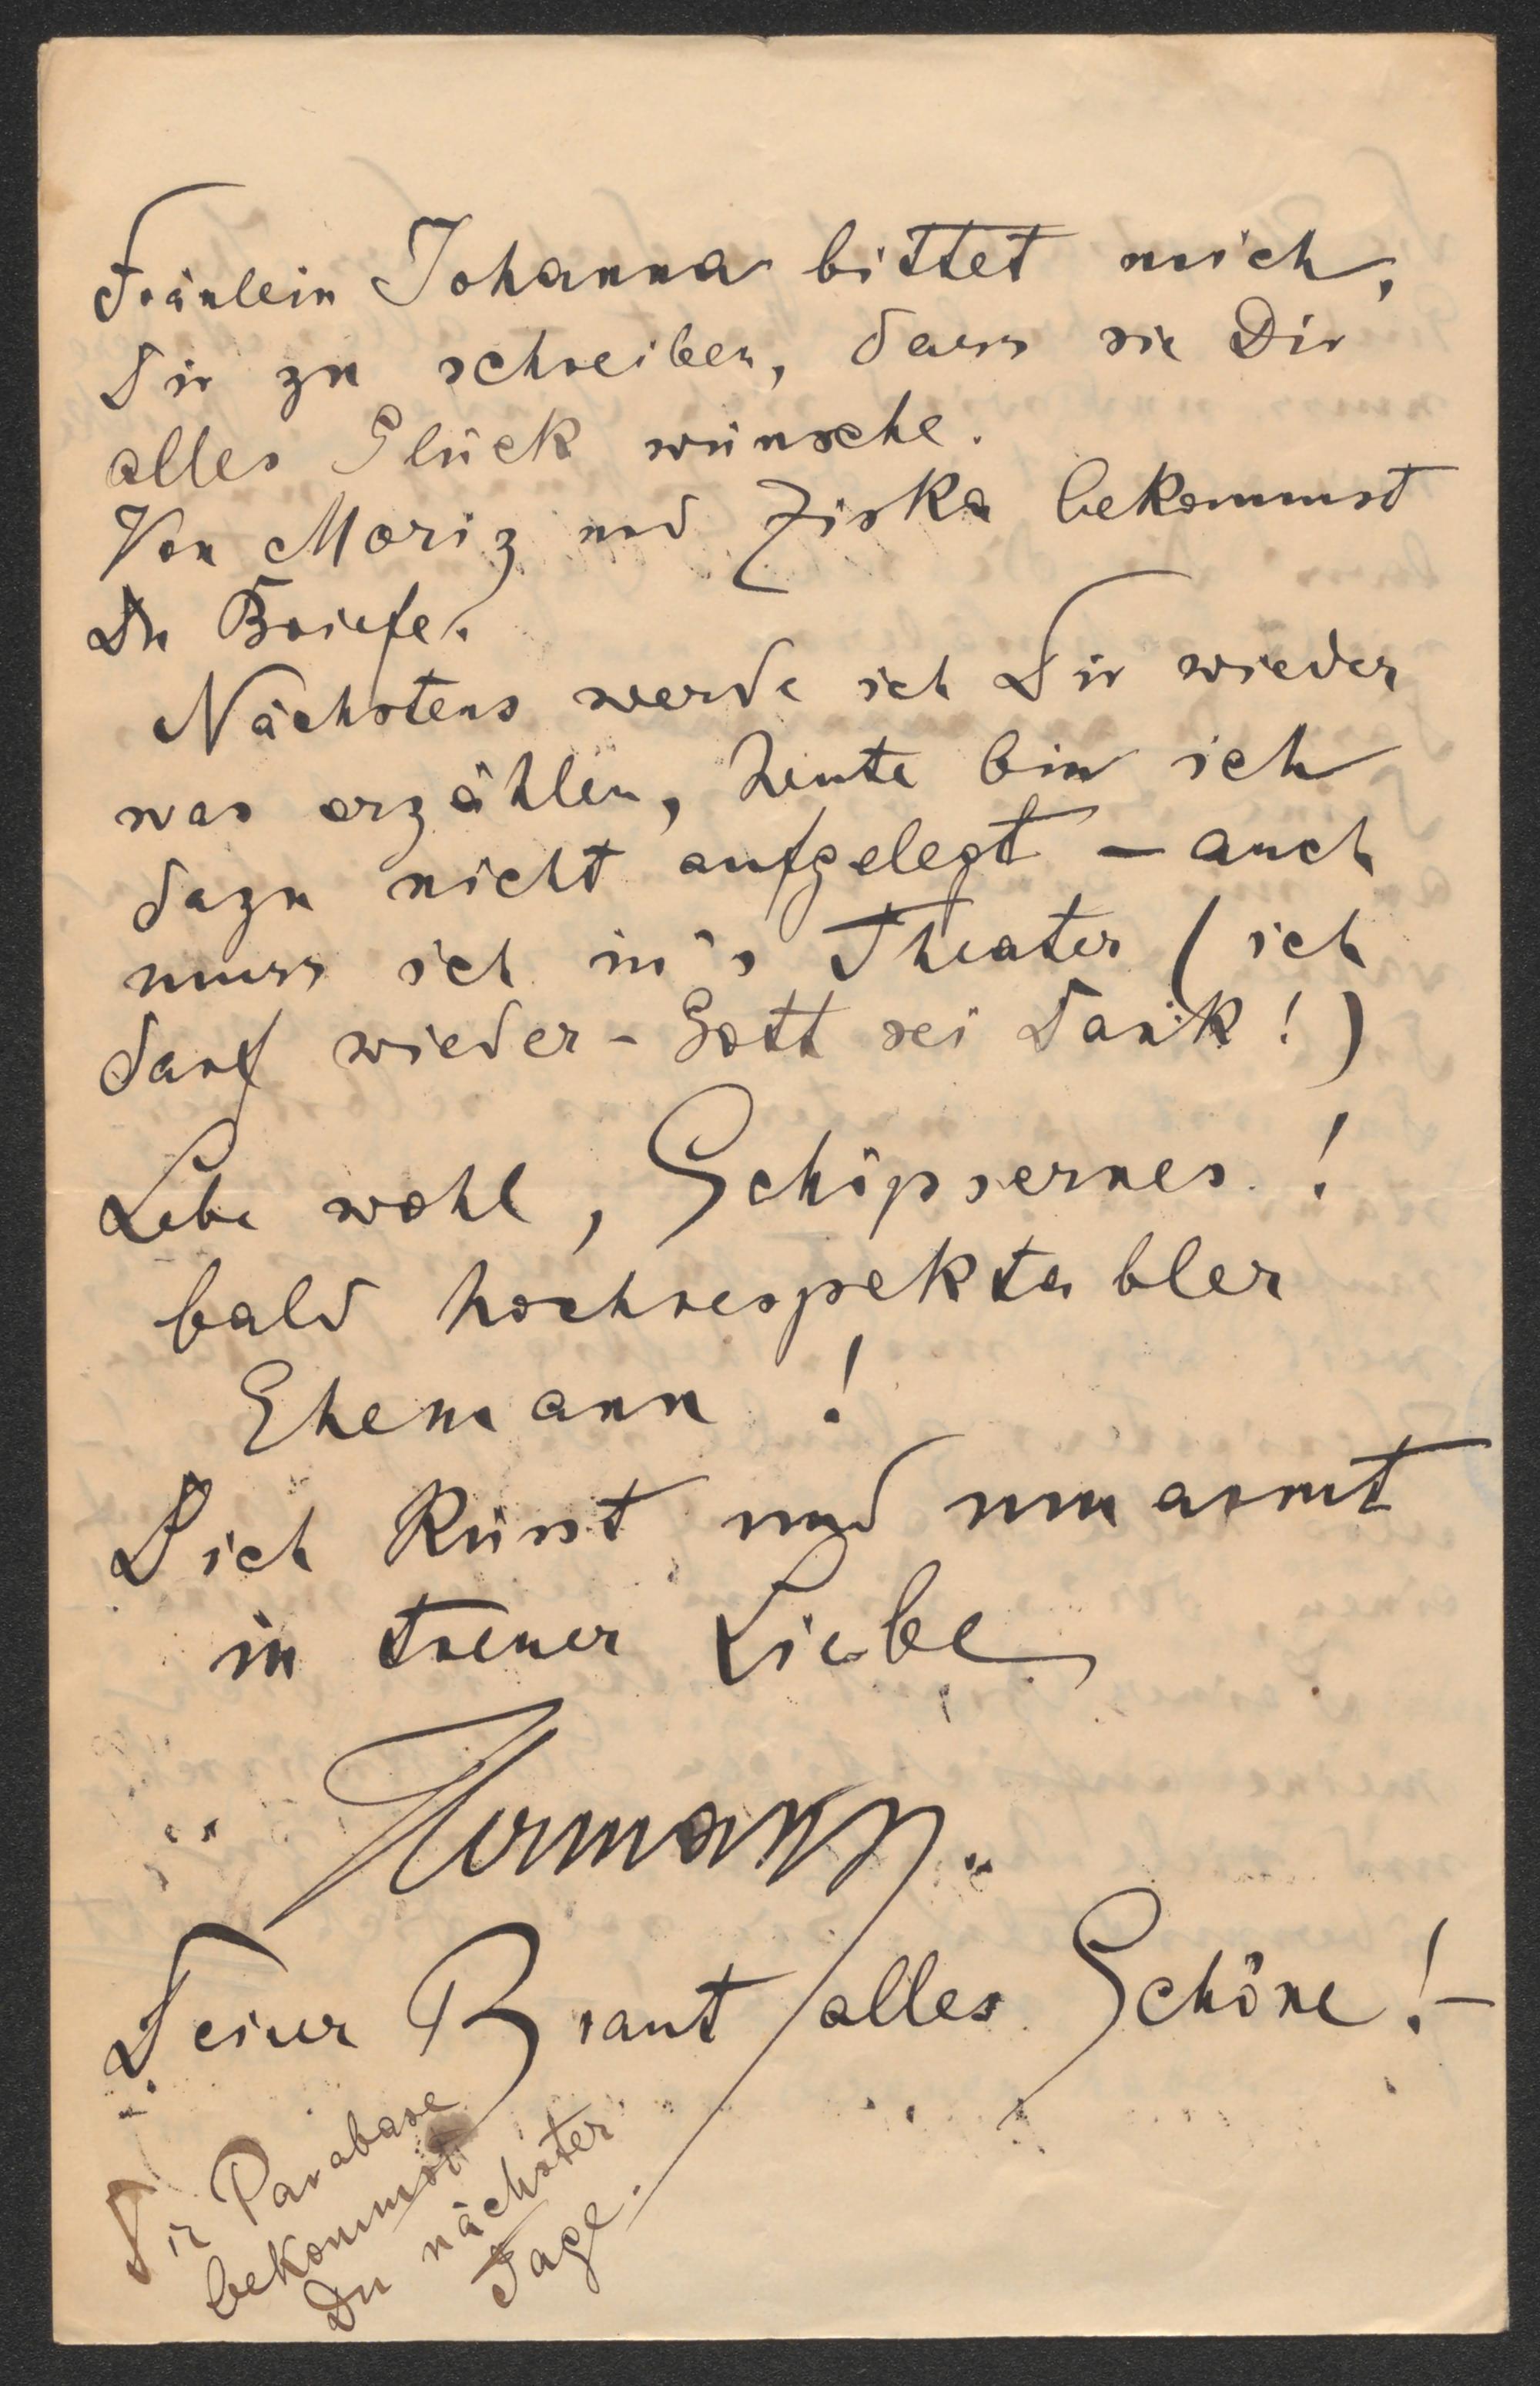 Fräulein Johanna bittet mich,
Dir zu schreiben, dass sie Dir
alles Glück wünsche.
Von Moriz und Ziska bekommst
Du Briefe.
Nächstens werde ich Dir wieder
was erzählen, heute bin ich
dazu nicht aufgelegt – auch
muss ich in's Theater (ich
darf wieder - Gott sei Dank!)
Lebe wohl, Schöpsernes!
bald hochrespektabler
Ehemann!
Dich küsst und umarmt
in treuer Liebe
Hermann.
Deiner Braut alles Schöne! –
Die Parabase
bekommst
Du nächster
Tage.